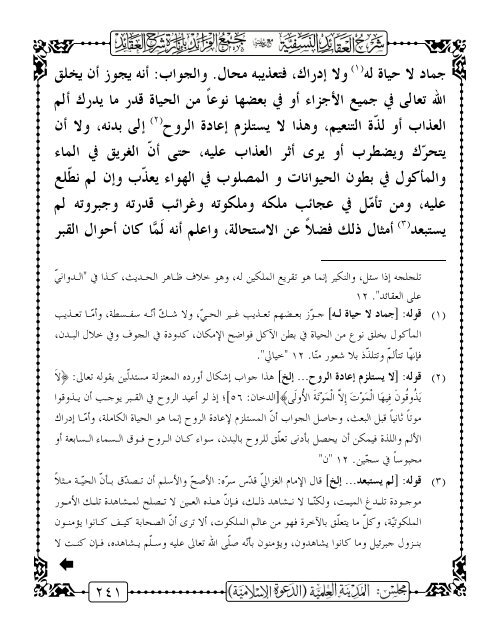 شرح العقائد النسفية مع جمع الفرائد بإنارة شرح العقائد
جماد لا حياة له(١) ولا إدراك، فتعذيبه محال. والجواب: أنه يجوز أن يخلق
الله تعالى في جميع الأجزاء أو في بعضها نوعاً من الحياة قدر ما يدرك ألم
العذاب أو لذّة التنعيم، وهذا لا يستلزم إعادة الروح(٢) إلى بدنه، ولا أن
يتحرّك ويضطرب أو يرى أثر العذاب عليه، حتى أنّ الغريق في الماء
والمأكول في بطون الحيوانات و المصلوب في الهواء يعذّب وإن لم نطّلع
عليه، ومن تأمّل في عجائب ملكه وملكوته وغرائب قدرته وجبروته لم
يستبعد(٣) أمثال ذلك فضلاً عن الاستحالة، واعلم أنه لَمَّا كان أحوال القبر
تلجلجه إذا سئل، والنكير إنما هو تقريع الملكين له، وهو خلاف ظاهر الحديث، كذا في "الدوانيّ
على العقائد". ١٢
(١) قوله: [جماد لا حياة لـه] جوّز بعضهم تعذيب غير الحيّ، ولا شكّ أنّه سفسطة، وأمّا تعذيب
المأكول بخلق نوع من الحياة في بطن الآكل فواضح الإمكان، كدودة في الجوف وفي خلال البدن،
فإنّها تتألّم وتتلذّذ بلا شعور منّا. ١٢ "خيالي".
(٢) قوله: [لا يستلزم إعادة الروح... إلخ] هذا جواب إشكال أورده المعتزلة مستدلّين بقوله تعالى: ﴿لاَ
يَذُوقُونَ فِيهَا الْمَوْتَ إِلاَّ الْمَوْتَةَ الأُولَى﴾[الدخان: ٥٦]؛ إذ لو أعيد الروح في القبر يوجب أن يذوقوا
موتاً ثانياً قبل البعث، وحاصل الجواب أنّ المستلزم لإعادة الروح إنما هو الحياة الكاملة، وأمّا إدراك
الألم واللذة فيمكن أن يحصل بأدنى تعلّق للروح بالبدن، سواء كان الروح فوق السماء السابعة أو
محبوساً في سجّين. ١٢ "ن"
(٣) قوله: [لم يستبعد... إلخ] قال الإمام الغزاليّ قدّس سرّه: الأصحّ والأسلم أن تصدّق بـأنّ الحيّة مثلاً
موجودة تلـدغ الميت، ولكنّـا لا نشاهد ذلـك، فإنّ هـذه العيـن لا تصلح لمشـاهدة تلـك الأمـور
الملكوتيّة، وكلّ ما يتعلّق بالآخرة فهو من عالم الملكوت، ألا ترى أنّ الصحابة كيف كـانوا يؤمنـون
بنزول جبرئيل وما كانوا يشاهدون، ويؤمنون بأنّه صلّى الله تعالى عليه وسلّم يشاهده، فإن كنت لا
مجلس: المدينة العلمية (الدعوة الإسلامية)
٢٤١